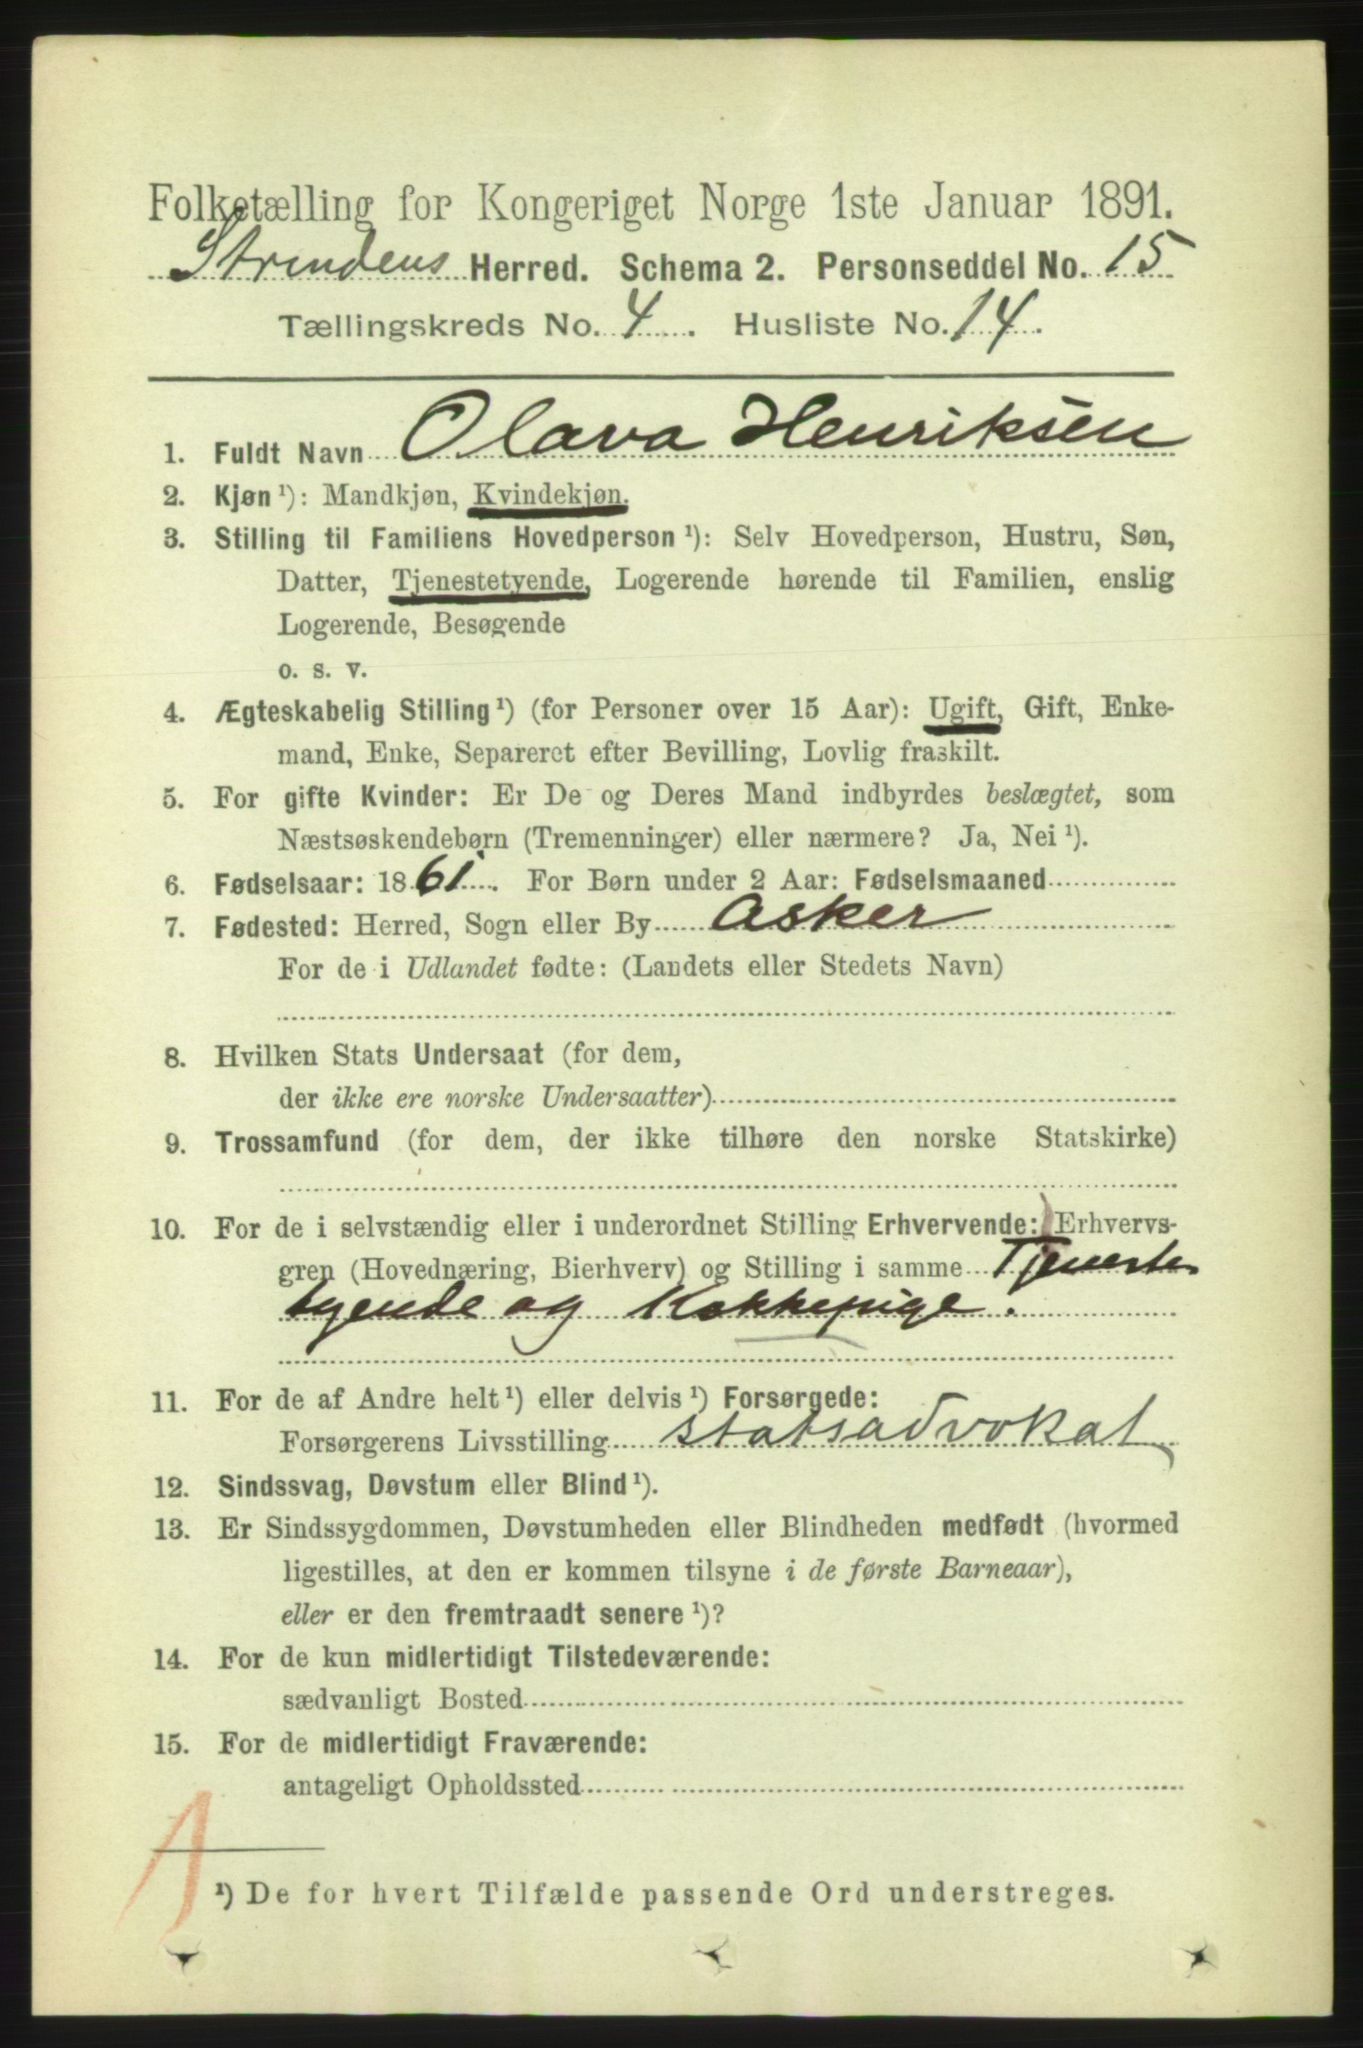 Folketælling for Kongeriget Norge 1ste Januar 1891.
Strindens Herred. Schema 2. Personseddel No. 15
Tællingskreds No. 4. Husliste No. 14.
1. Fuldt Navn Olava Henriksen
2. Kjøn ¹): Mandkjøn, Kvindekjøn.
3. Stilling til Familiens Hovedperson ¹): Selv Hovedperson, Hustru, Søn,
Datter, Tjenestetyende, Logerende hørende til Familien, enslig
Logerende, Besøgende
o. s. v.
4. Ægteskabelig Stilling ¹) (for Personer over 15 Aar): Ugift, Gift, Enke-
mand, Enke, Separeret efter Bevilling, Lovlig fraskilt.
5. For gifte Kvinder: Er De og Deres Mand indbyrdes beslægtet, som
Næstsøskendebørn (Tremenninger) eller nærmere? Ja, Nei ¹).
6. Fødselsaar: 1861. For Børn under 2 Aar: Fødselsmaaned
7. Fødested: Herred, Sogn eller By Asker
For de i Udlandet fødte: (Landets eller Stedets Navn)
8. Hvilken Stats Undersaat (for dem,
der ikke ere norske Undersaatter)
9. Trossamfund (for dem, der ikke tilhøre den norske Statskirke)
10. For de i selvstændig eller i underordnet Stilling Erhvervende: Erhvervs-
gren (Hovednæring, Bierhverv) og Stilling i samme Tjeneste
tyende og Kokkepige.
11. For de af Andre helt ¹) eller delvis ¹) Forsørgede:
Forsørgerens Livsstilling statsadvokat
12. Sindssvag, Døvstum eller Blind ¹).
13. Er Sindssygdommen, Døvstumheden eller Blindheden medfødt (hvormed
ligestilles, at den er kommen tilsyne i de første Barneaar),
eller er den fremtraadt senere ¹)?
14. For de kun midlertidigt Tilstedeværende:
sædvanligt Bosted
15. For de midlertidigt Fraværende:
antageligt Opholdssted
A
¹) De for hvert Tilfælde passende Ord understreges.